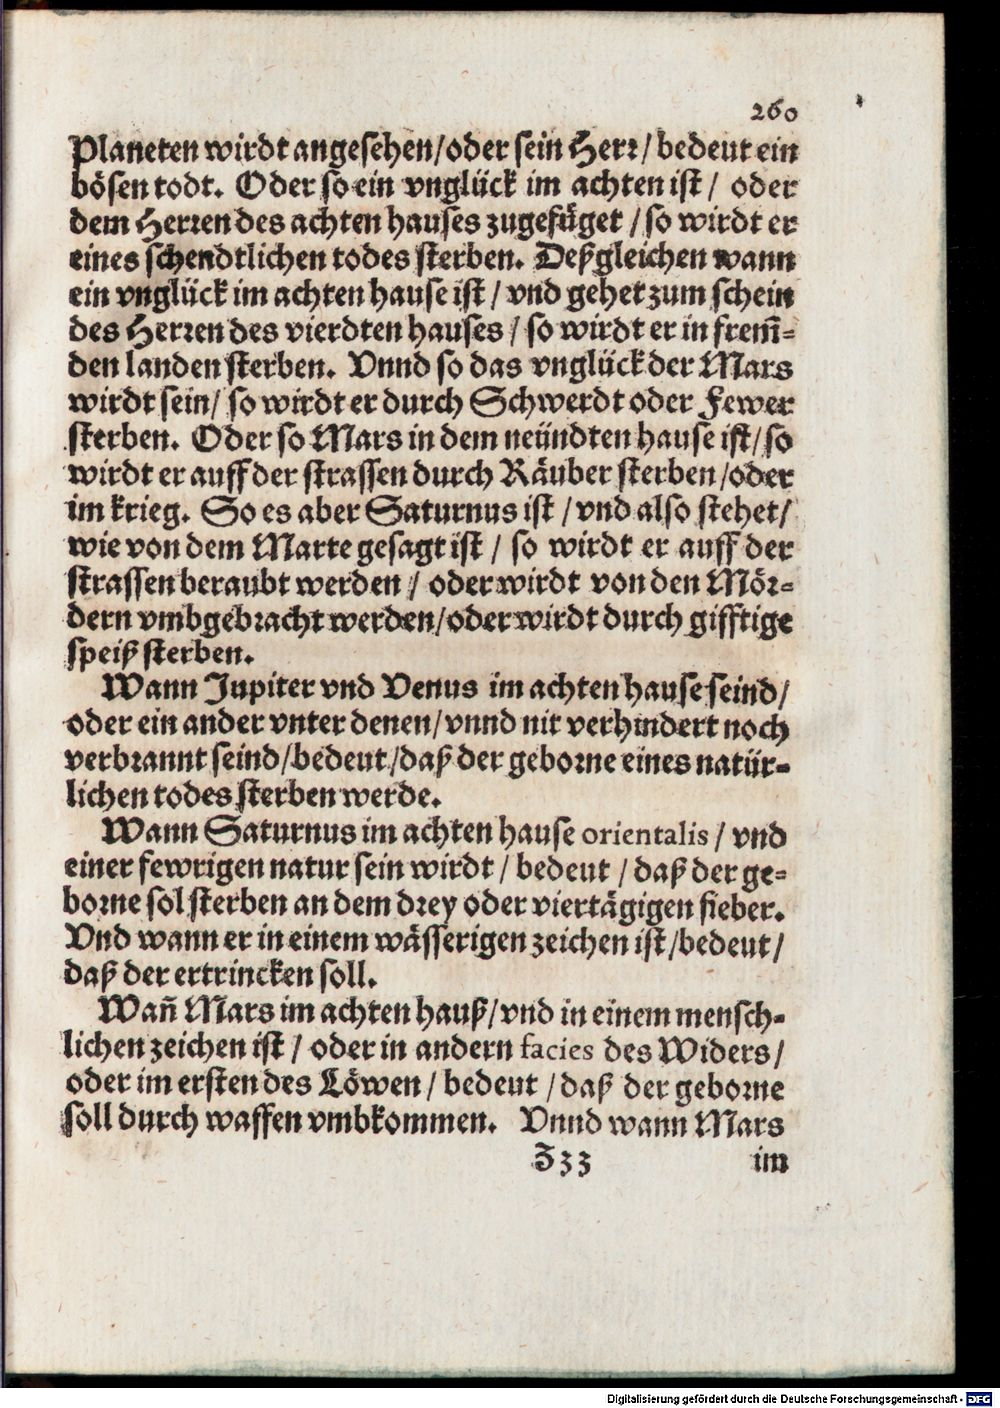 260
Planeten wirdt angesehen/oder sein Herr/bedeut ein
bösen todt. Oder so ein vnglück im achten ist/ oder
dem Herren des achten hauses zugefüget /so wirdt er
eines schendtlichen todes sterben. Deßgleichen wann
ein vnglück im achten hause ist / vnd gehet zum schein
des Herren des vierdten hauses / so wirdt er in frem̃-
den landen sterben. Vnnd so das vnglück der Mars
wirdt sein/ so wirdt er durch Schwerdt oder Fewer
sterben. Oder so Mars in dem neündten hause ist/so
wirdt er auff der strassen durch Räuber sterben /oder
im krieg. So es aber Saturnus ist / vnd also stehet/
wie von dem Marte gesagt ist / so wirdt er auff der
strassen beraubt werden / oder wirdt von den Mör-
dern vmbgebracht werden/oder wirdt durch gifftige
speiß sterben.
Wann Jupiter vnd Venus im achten hause seind/
oder ein ander vnter denen/vnnd nit verhindert noch
verbrannt seind/bedeut/daß der geborne eines natür-
lichen todes sterben werde.
Wann Saturnus im achten hause orientalis / vnd
einer fewrigen natur sein wirdt / bedeut / daß der ge-
borne sol sterben an dem drey oder viertägigen fieber.
Vnd wann er in einem wässerigen zeichen ist/bedeut/
daß der ertrincken soll.
Wañ Mars im achten hauß/vnd in einem mensch-
lichen zeichen ist / oder in andern facies des Widers/
oder im ersten des Löwen / bedeut /daß der geborne
soll durch waffen vmbkommen. Vnnd wann Mars
Zzz im
Digitalisierung gefördert durch die Deutsche Forschungsgemeinschaft - DFG